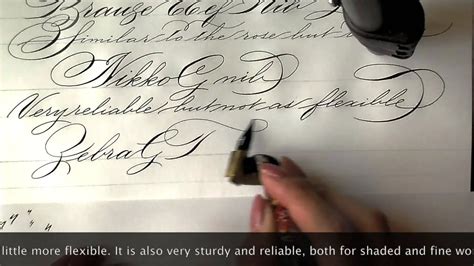 Brauze 66 ef
Similar to the rose but
Nikko G nib
Very reliable but not as flexible
Zebra G
little more flexible. It is also very sturdy and reliable, both for shaded and fine wo